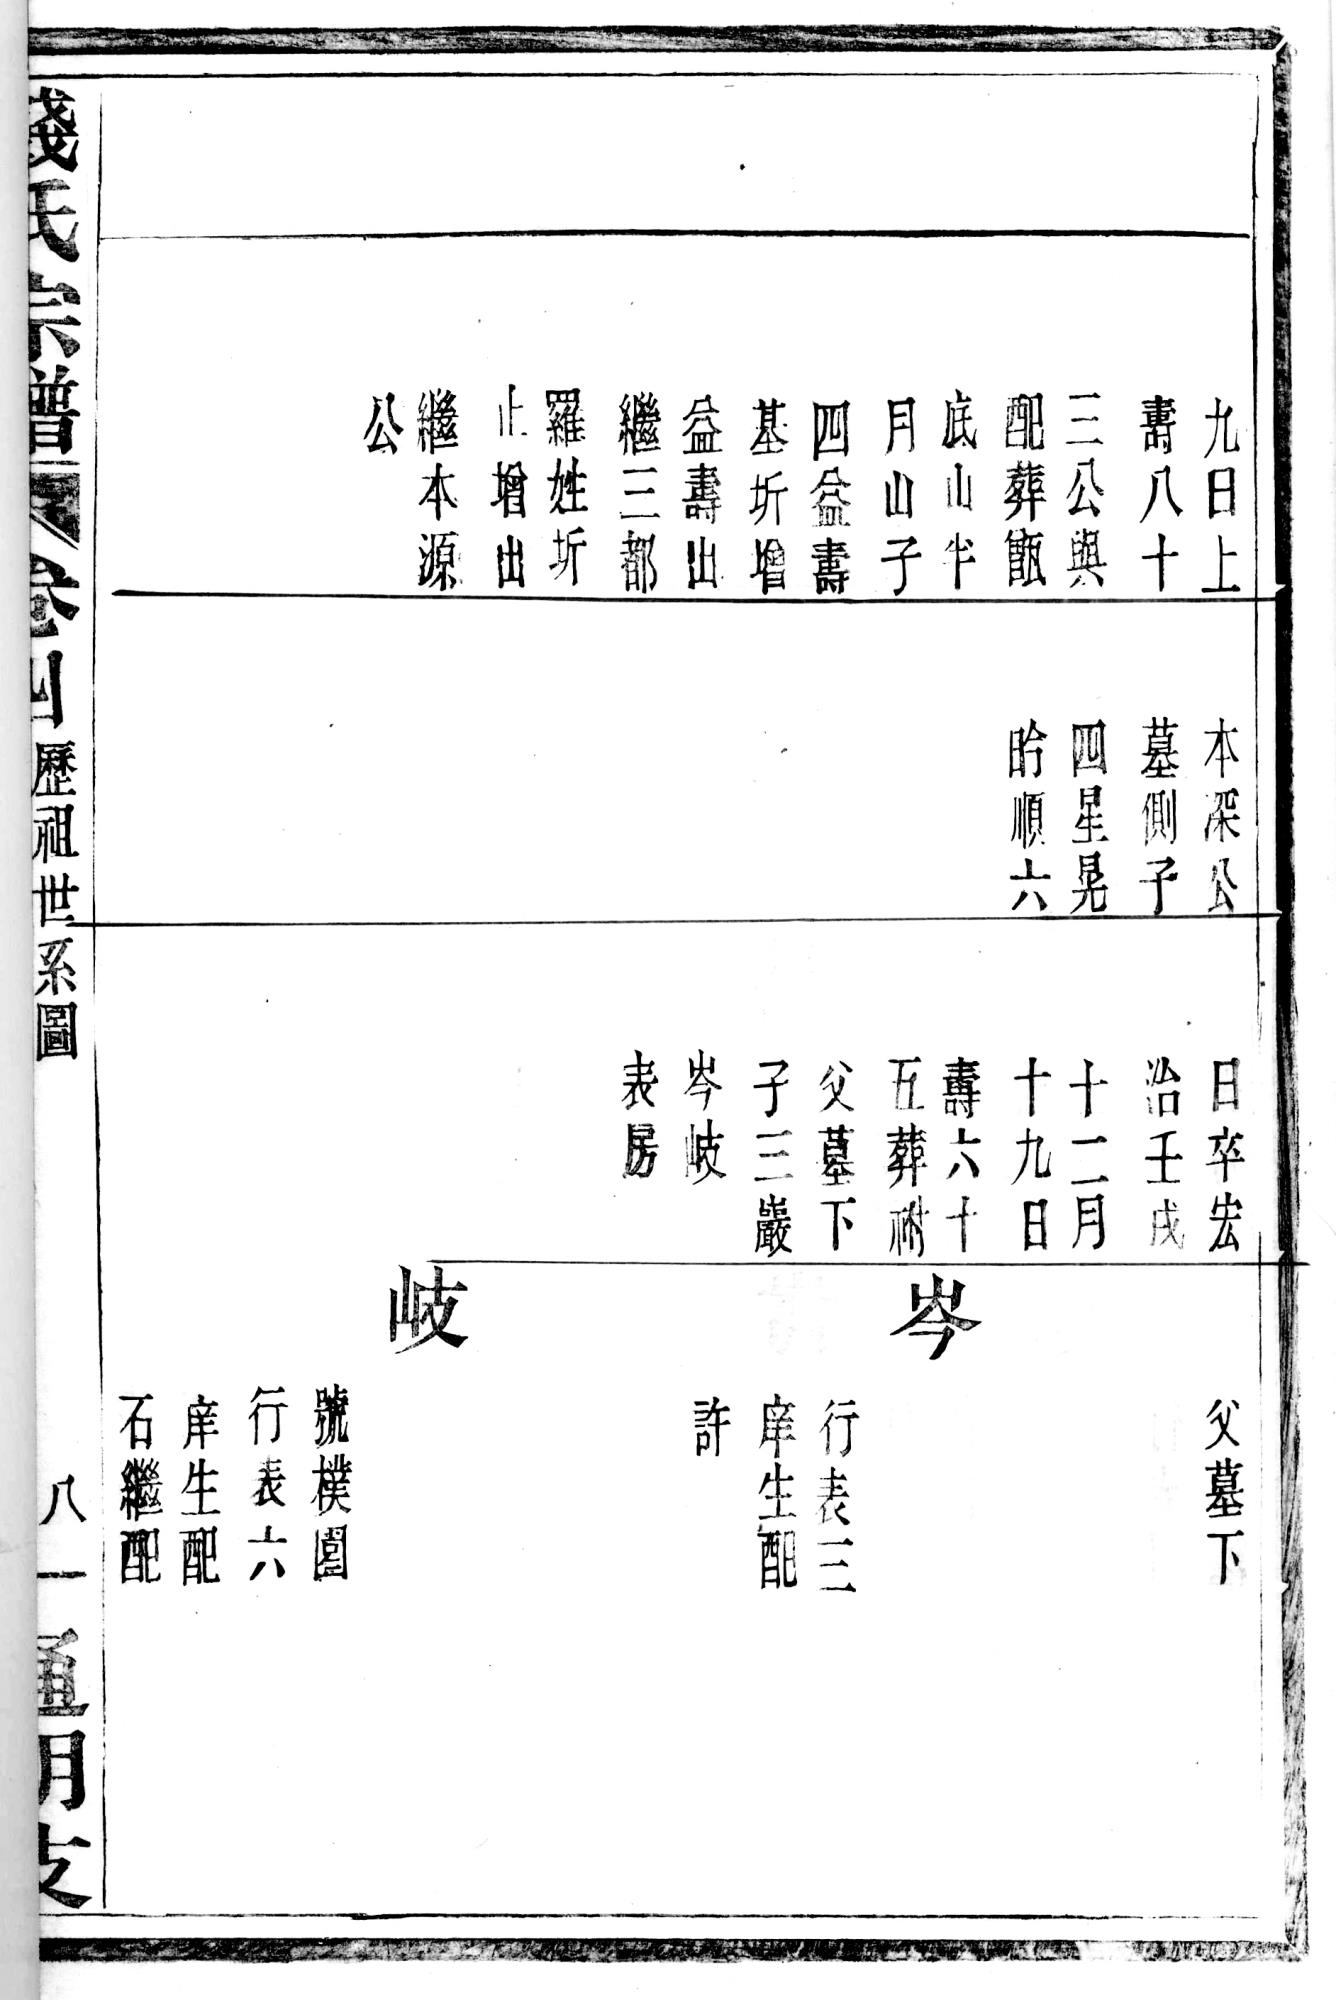 九日上
壽八十
三公與
配葬甑
底山半
月山子
四益壽
基圻增
益壽出
繼三都
羅姓圻
止增出
繼本源
公
本深公
墓側子
四星晃
昤順六
日卒宏
治壬戌
十二月
十九日
壽六十
五葬祔
父墓下
子三巖
岑岐
表房
父墓下
岑
行表三
庠生配
許
岐
號樸園
行表六
庠生配
石繼配
錢氏宗譜
卷四
歷祖世系圖
八一
通明支